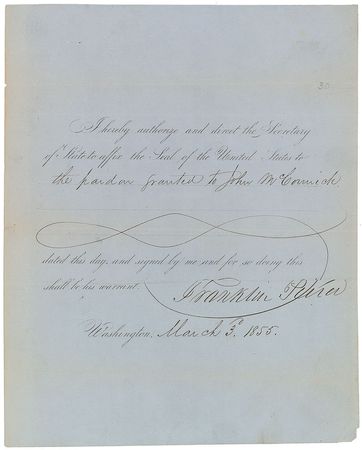 30
I hereby authorize and direct the Secretary
of State to affix the Seal of the United States to
the pardon granted to John McCormick
dated this day, and signed by me and for so doing this
shall be his warrant.
Franklin Pierce
Washington, March 3d. 1855.